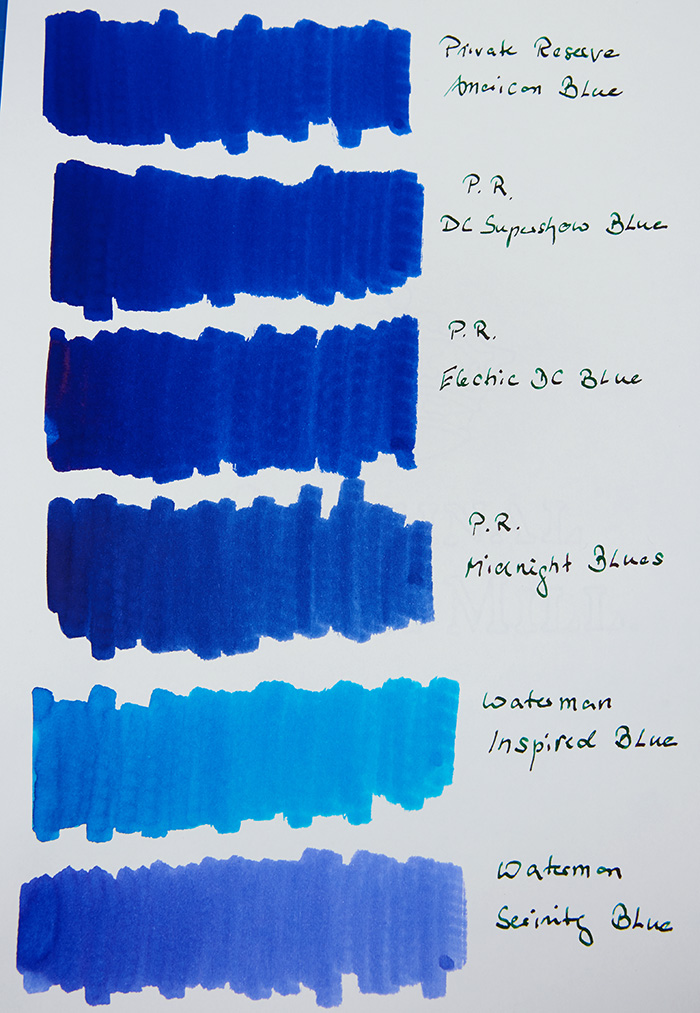 Private Reserve
American Blue
P.R.
DC Supershow Blue
P.R.
Electric DC Blue
P.R.
Midnight Blues
Waterman
Inspired Blue
Waterman
Serinity Blue